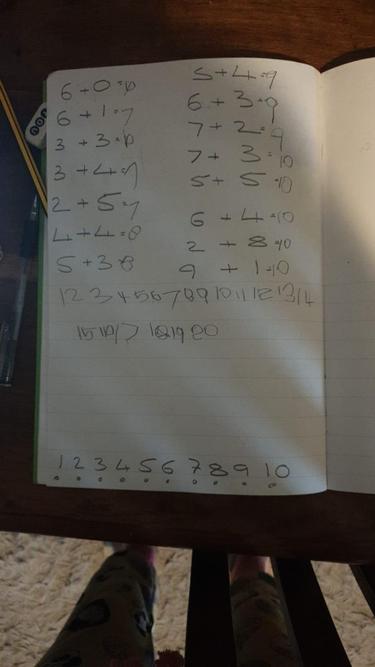 6 + 0 = 6
6 + 1 = 7
3 + 3 = 6
3 + 4 = 7
2 + 5 = 7
4 + 4 = 8
5 + 3 8
5 + 4 = 9
6 + 3 = 9
7 + 2 = 9
7 + 3 = 10
5 + 5 = 10
6 + 4 = 10
2 + 8 = 10
9 + 1 = 10
1 2 3 4 5 6 7 8 9 10 11 12 13 14
15 16 17 18 19 20
1 2 3 4 5 6 7 8 9 10